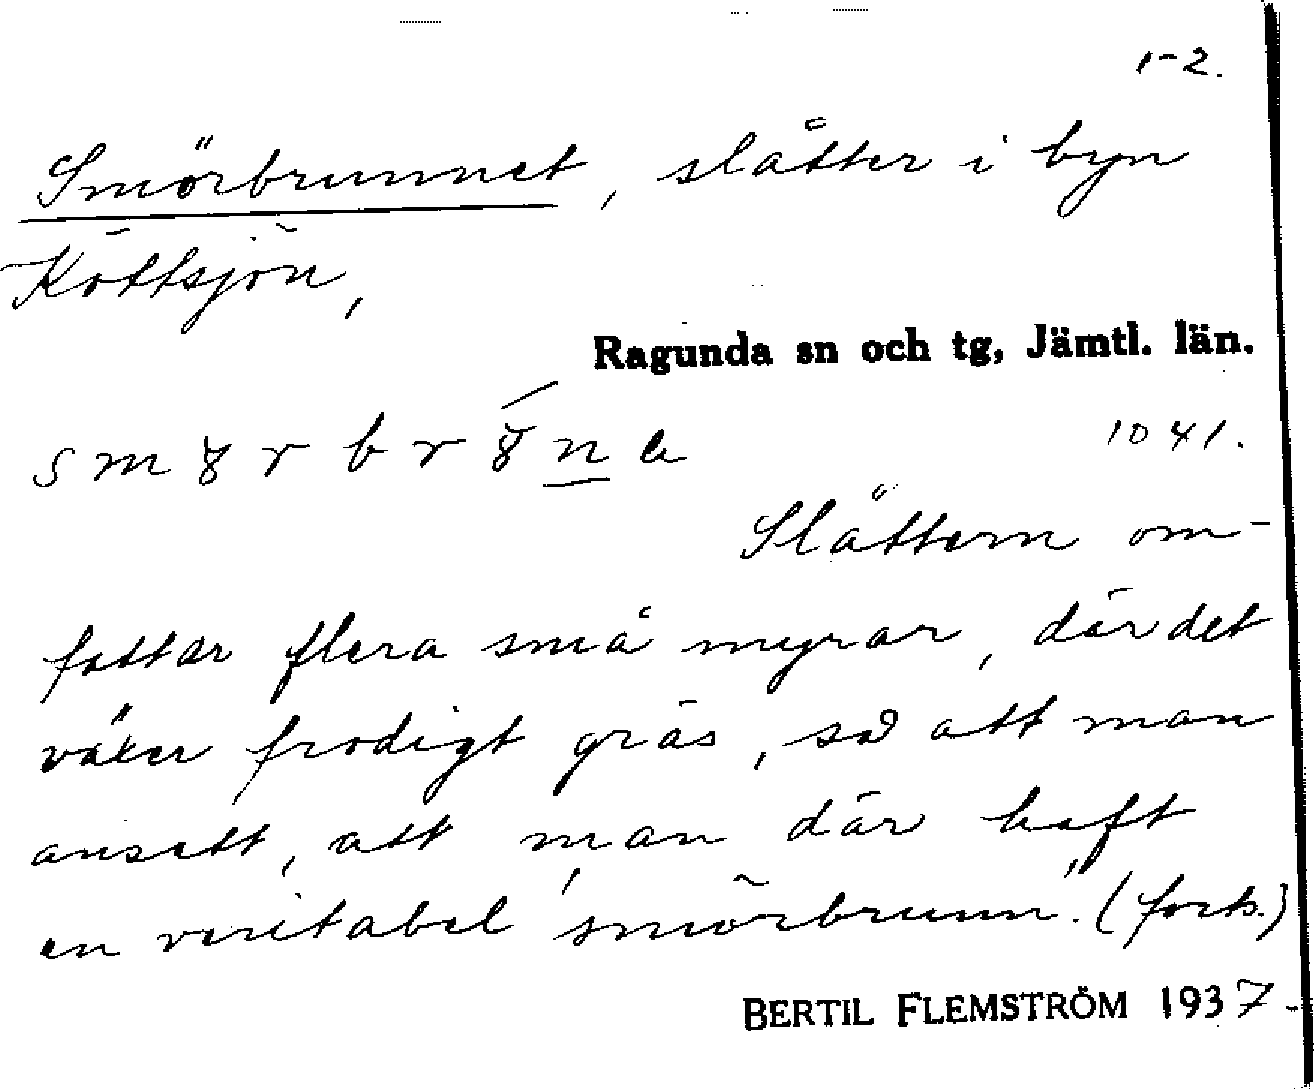 1-2.
Smörbrunnet, slåtter i byn
Köttsjön,
Ragunda sn och tg, Jämtl. län.
1041.
Slåttern om-
fattar flera små myrar, där det
växer frodigt gräs, så att man
ansett, att man där haft
en veritabel 'smörbrunn'. (forts.)
BERTIL FLEMSTRÖM 1937.